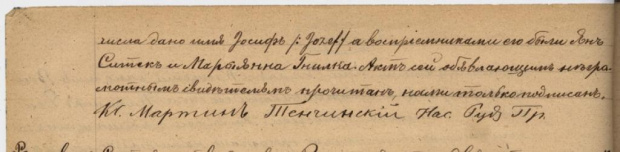 числа дано имя Іосифъ /: Jozeff а воспріемниками его были Янъ
Ситекъ и Марьянна Гнилка. Актъ сей объявляющимъ негра-
мотнымъ свидѣтелямъ прочитанъ, нами только подписанъ.
Кс. Мартинъ Тенчинскій Нас. Руд. Пр.